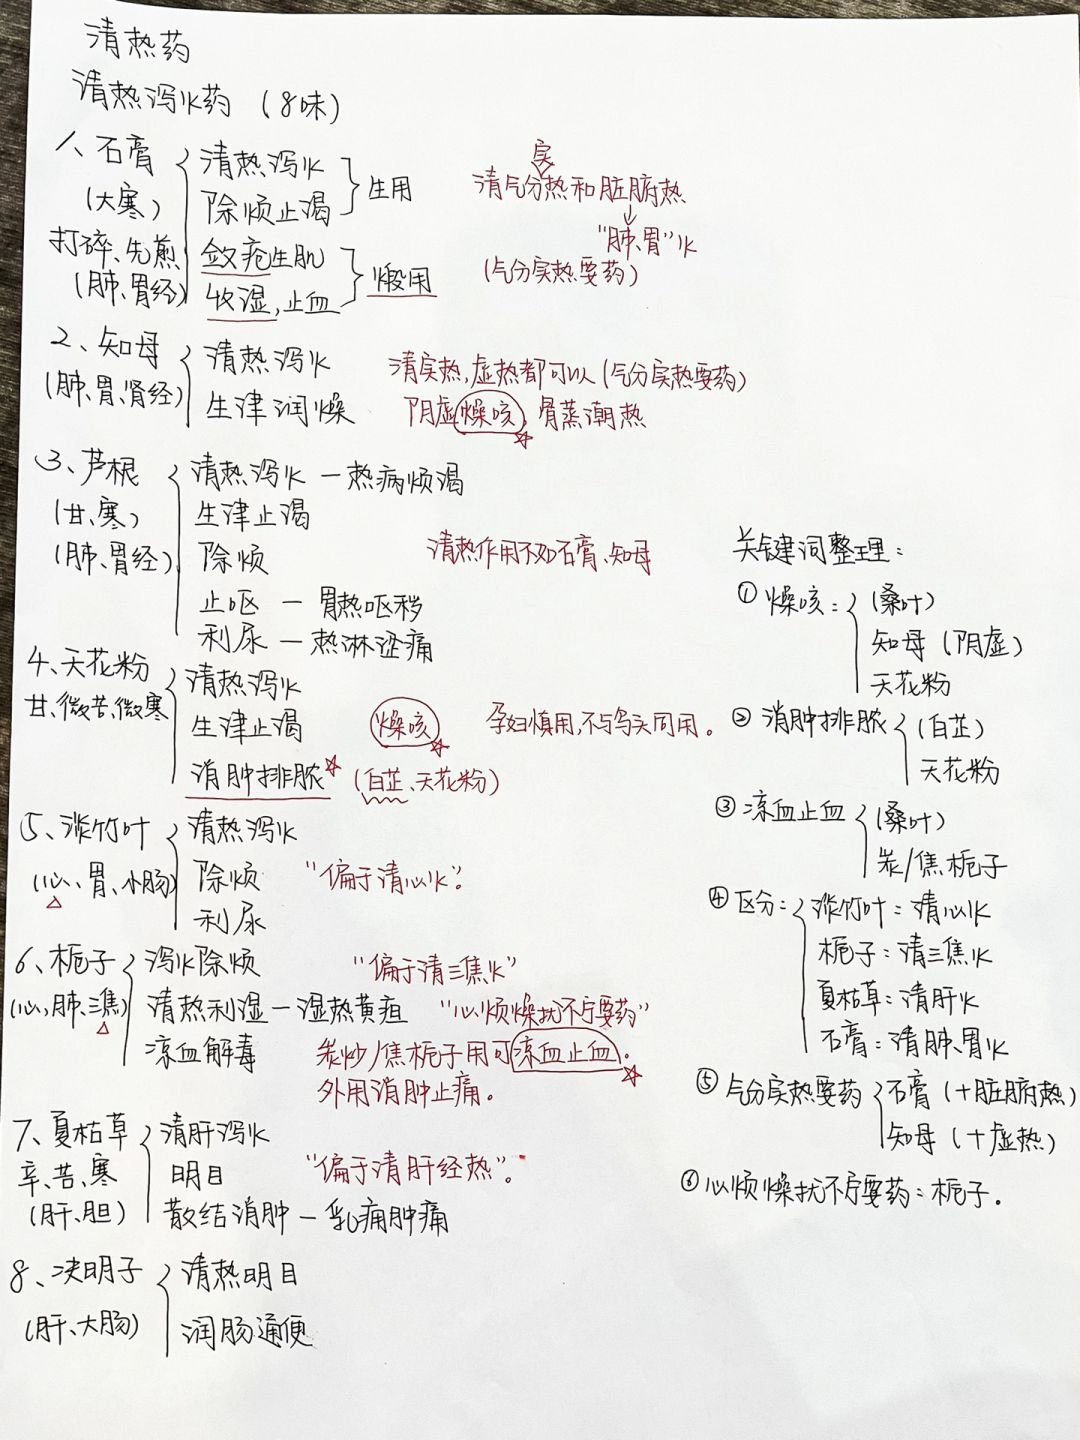 清热药
清热泻火药（8味）
1、石膏
（大寒）
打碎、先煎
（肺、胃经）
清热泻火
除烦止渴
生用
敛疮生肌
收湿，止血
煅用
实
清气分热和脏腑热
“肺、胃”火
（气分实热要药）
2、知母
（肺、胃、肾经）
清热泻火
生津润燥
清实热，虚热都可以（气分实热要药）
阴虚燥咳，骨蒸潮热
3、芦根
（甘、寒）
（肺、胃经）
清热泻火－热病烦渴
生津止渴
除烦
止呕－胃热呕秽
利尿－热淋涩痛
清热作用不如石膏、知母
4、天花粉
甘、微苦、微寒
清热泻火
生津止渴
消肿排脓
燥咳
孕妇慎用，不与乌头同用。
（白芷、天花粉）
5、淡竹叶
（心、胃、小肠）
清热泻火
除烦
利尿
“偏于清心火”。
6、栀子
（心，肺、三焦）
泻火除烦
清热利湿－湿热黄疸
凉血解毒
“偏于清三焦火”
“心烦燥扰不宁要药”
炭炒/焦栀子用可凉血止血。
外用消肿止痛。
7、夏枯草
辛、苦、寒
（肝、胆）
清肝泻火
明目
散结消肿－乳痈肿痛
“偏于清肝经热”。
8、决明子
（肝、大肠）
清热明目
润肠通便
关键词整理：
①燥咳：
（桑叶）
知母（阴虚）
天花粉
②消肿排脓
（白芷）
天花粉
③凉血止血
（桑叶）
炭/焦栀子
④区分：
淡竹叶：清心火
栀子：清三焦火
夏枯草：清肝火
石膏：清肺、胃火
⑤气分实热要药
石膏（+脏腑热）
知母（+虚热）
⑥心烦燥扰不宁要药：栀子。